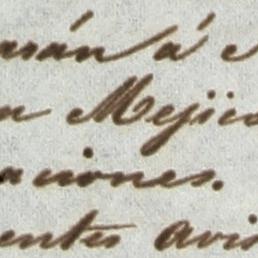 arán á
en Mejico
aciones.
entes avis